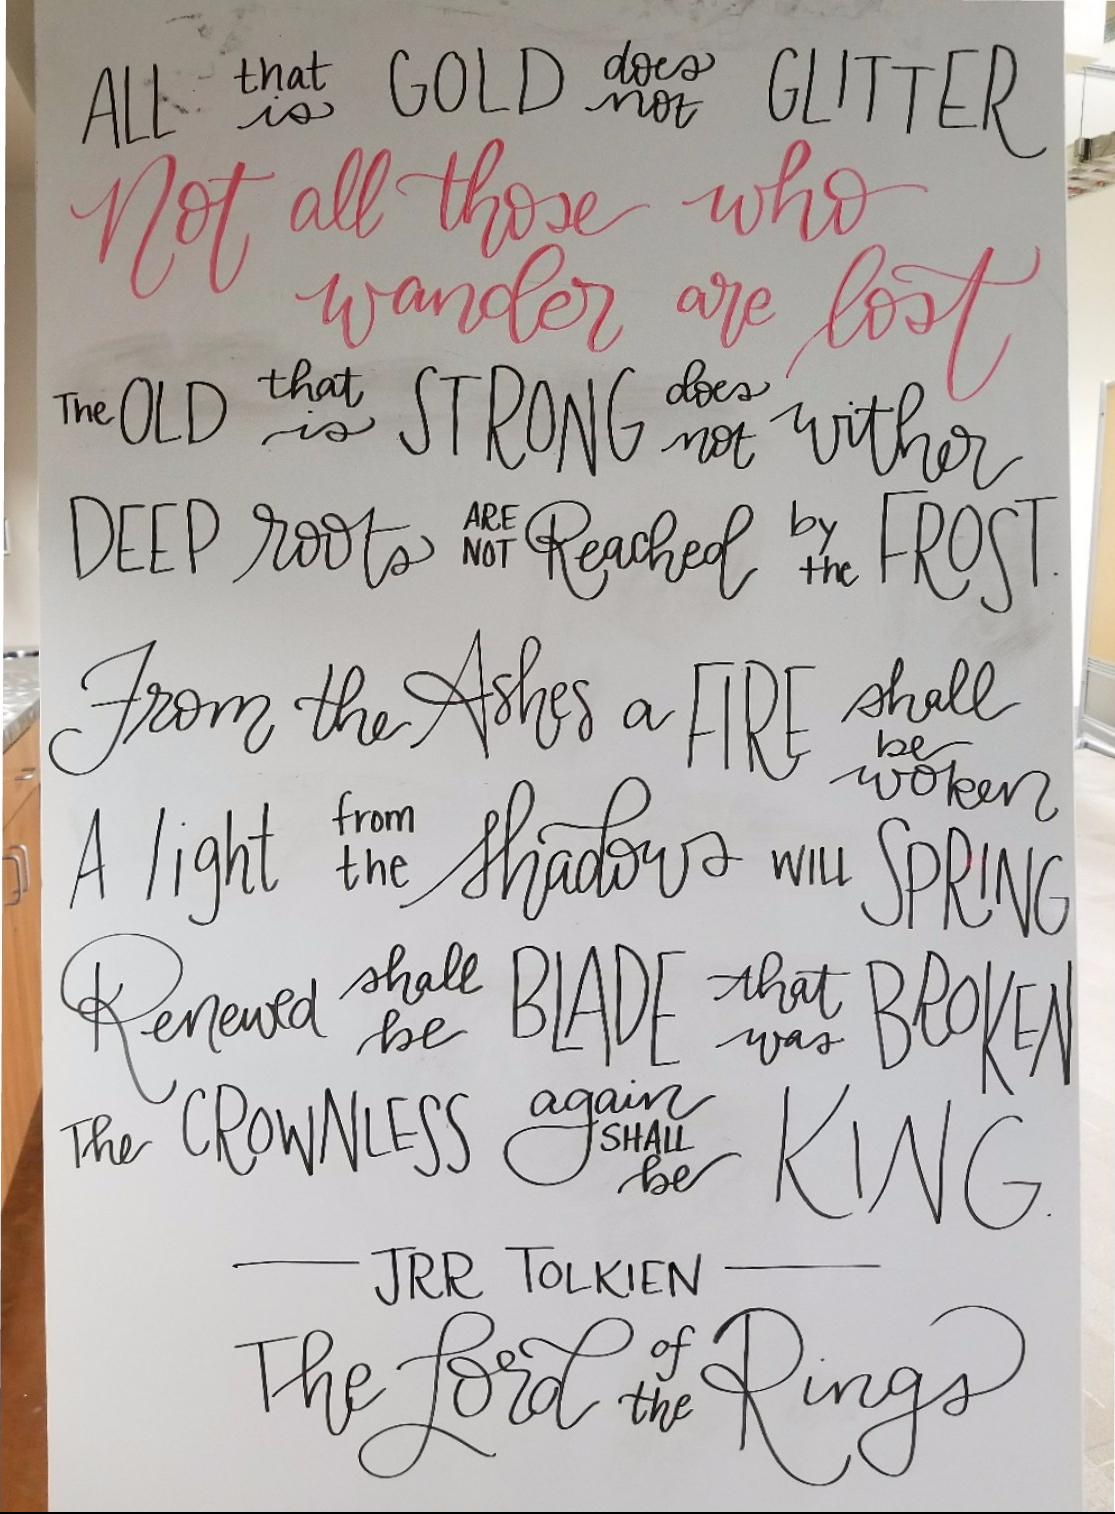 ALL that is GOLD does not GLITTER
Not all those who
wander are lost
The OLD that is STRONG does not wither
DEEP roots ARE NOT Reached by the FROST.
From the Ashes a FIRE shall be woken
A light from the shadows WILL SPRING
Renewed shall be BLADE that was BROKEN
The CROWNLESS again SHALL be KING.
JRR TOLKIEN
The Lord of the Rings